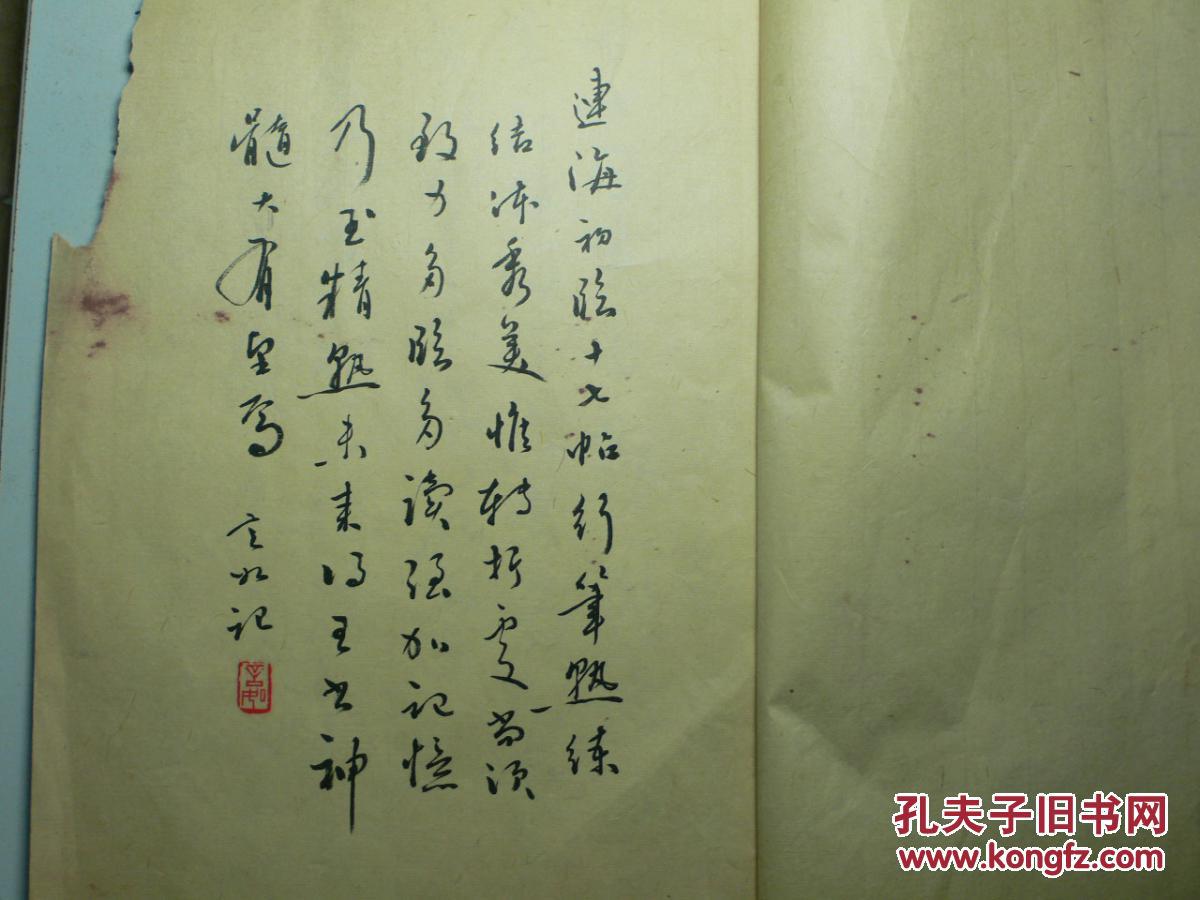 連海初临十七帖行筆熟練
结体秀美惟转折处尚须
致力多临多读强加记憶
乃至精熟未来得王书神
髓大有望焉
言如记
孔夫子旧书网
www.kongfz.com